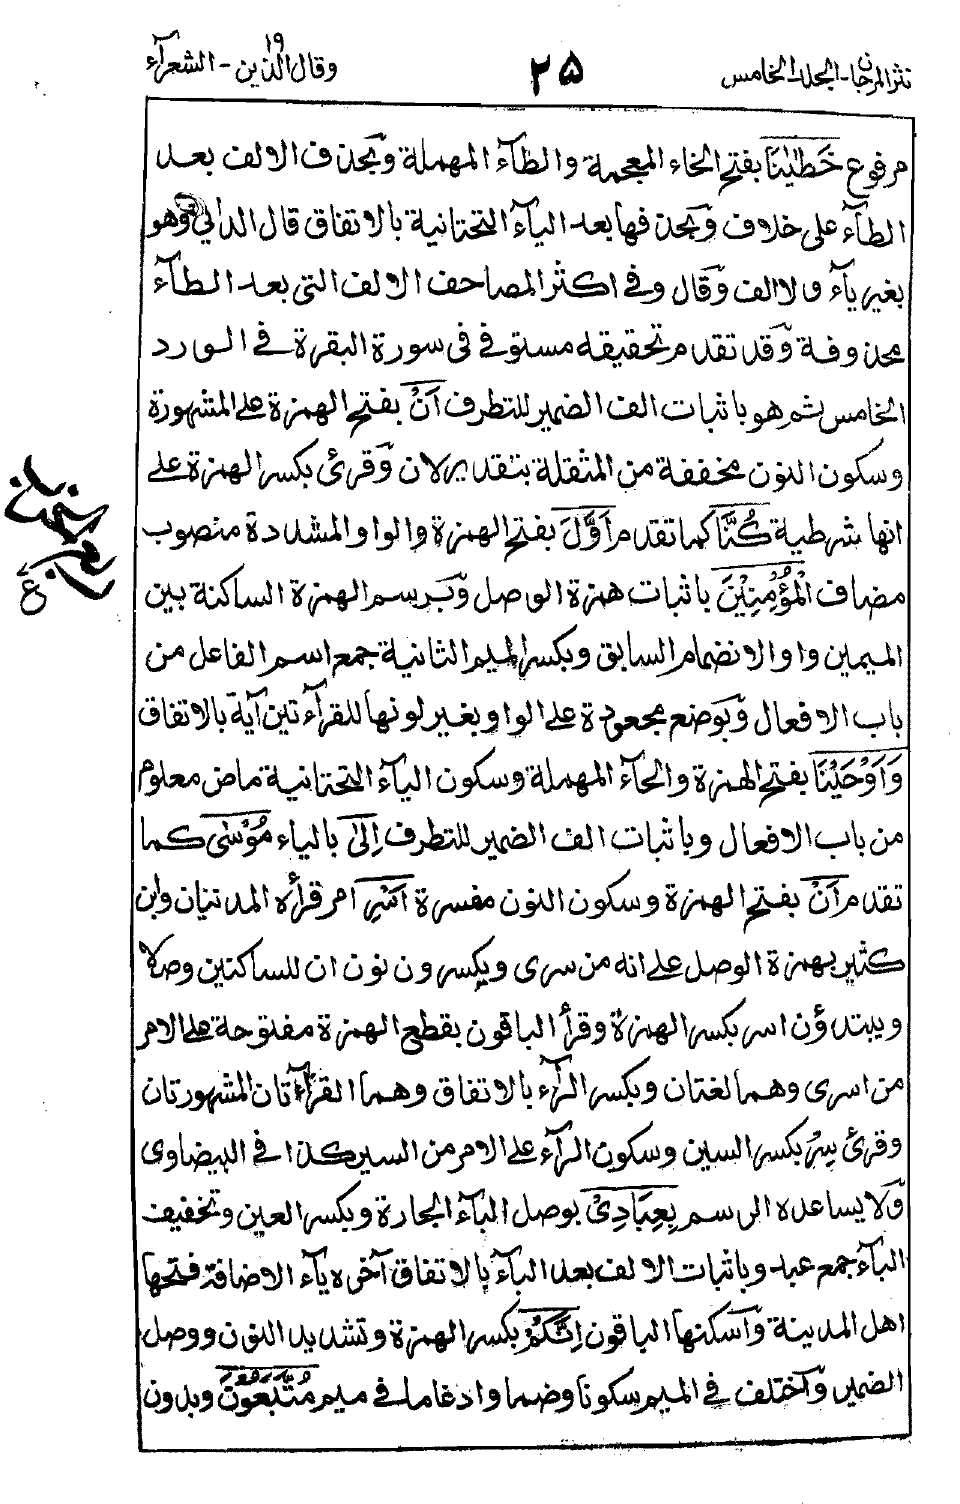 نثر المرجان - المجلد الخامس
٢٥
وقال الذين ١٩ - الشعرآء
مرفوع خَطٰيٰنَا بفتح الخاء المعجمة والطآء المهملة وبحذف الالف بعد
الطآء على خلاف وبحذفها بعد اليآء التحتانية بالاتفاق قال الداني وهو
بغير يآء ولا الف وقال وفي اكثر المصاحف الالف التى بعد الطآء
محذوفة وقد تقدم تحقيقه مستوفى فى سورة البقرة في الورد
الخامس ثم هو باثبات الف الضمير للتطرف اَنْ بفتح الهمزة على المشهورة
وسكون النون مخففة من المثقلة بتقدير لان وقرئ بكسر الهمزة على
انها شرطية كُنَّا كما تقدم اَوَّلَ بفتح الهمزة والواو المشددة منصوب
مضاف الْمُؤْمِنِيْنَ باثبات همزة الوصل وبرسم الهمزة الساكنة بين
الميمين واوا لانضمام السابق وبكسر الميم الثانية جمع اسم الفاعل من
باب الافعال وبوضع مجعودة على الواو بغير لونها للقرآءتين آية بالاتفاق
وَاَوْحَيْنَا بفتح الهمزة والحآء المهملة وسكون اليآء التحتانية ماض معلوم
من باب الافعال وباثبات الف الضمير للتطرف اِلٰى بالياء مُوْسٰى كما
تقدم اَنْ بفتح الهمزة وسكون النون مفسرة اَسْرِ امر قرأه المدنيان وابن
كثير بهمزة الوصل على انه من سرى ويكسرون نون ان للساكنين وصلا
ويبتدؤن اسر بكسر الهمزة وقرأ الباقون بقطع الهمزة مفتوحة على الامر
من اسرى وهما لغتان وبكسر الرآء بالاتفاق وهما القرآءتان المشهورتان
وقرئ سِرْ بكسر السين وسكون الرآء على الامر من السير كذا في البيضاوى
ولا يساعده الرسم بِعِبَادِيْ بوصل البآء الجارة وبكسر العين وتخفيف
البآء جمع عبد وباثبات الالف بعد البآء بالاتفاق آخره يآء الاضافة فتحها
اهل المدينة وآسكنها الباقون اِنَّكُمْ بكسر الهمزة وتشديد النون ووصل
الضمير وآختلف في الميم سكونا وضما وادغاما في ميم مُتَّبَعُوْنَ وبدون